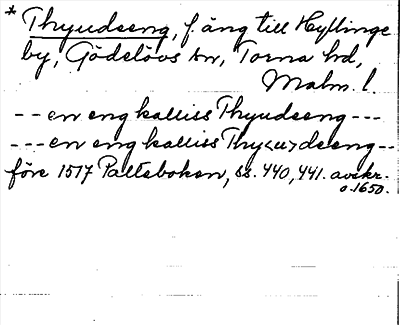 * Thyudseng, f. äng till Hyllinge
by, Gödelövs sn, Torna hd,
Malm. l.
-- en eng kalliss Thyudseng ---
--- en eng kalliss Thy<u>dseng --
före 1517 Palteboken, ss. 440, 441. avskr.
o. 1650.